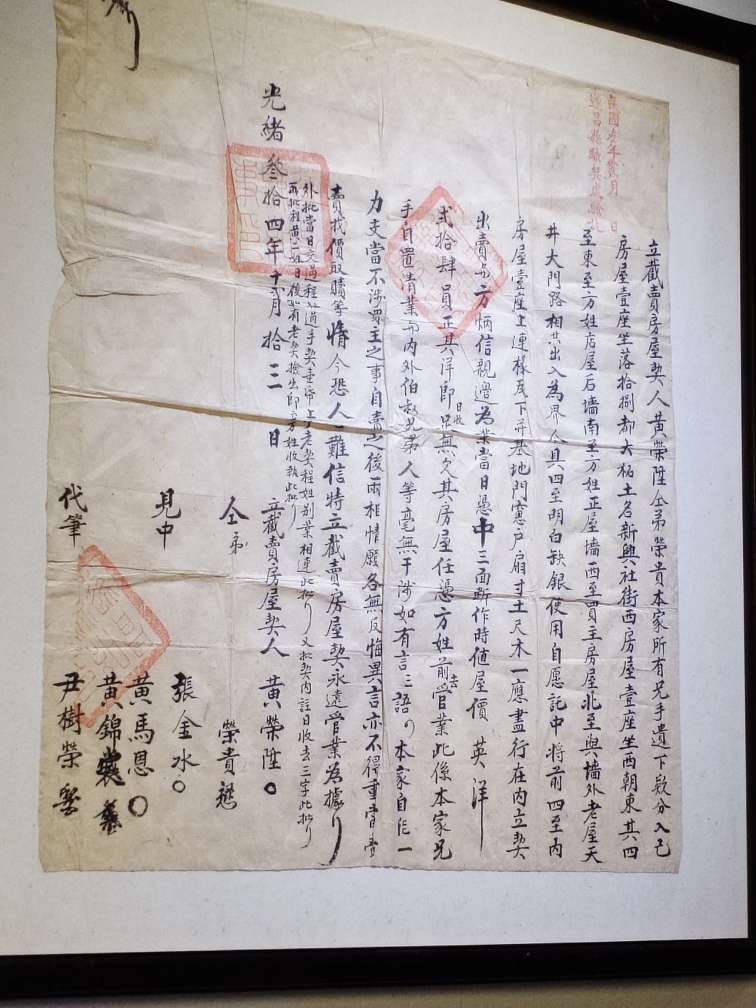 立截賣房屋契人黃榮陞仝弟榮貴本家所有兄手遺下欵分入己
房屋壹座坐落拾捌都大栢土名新興社街西房屋壹座坐西朝東其四
至東至方姓店屋后墻南至方姓正屋墻西至買主房屋北至與墻外老屋天
井大門路相共出入為界今具四至明白缺銀使用自愿託中將前四至內
房屋壹座上連椽瓦下并基地門窻戶扇寸土尺木一應盡行在內立契
出賣与方炳信親邊為業當日憑中三面斷作時值屋價英洋
弍拾肆員正其洋即日收足無欠其房屋任憑方姓前去管業此係本家兄
手自置清業与內外伯叔兄弟人等毫無干涉如有言三語四本家自能一
力支當不涉買主之事自賣之後兩相情愿各無反悔異言亦不得重當重
賣找價取贖等情今恐人心難信特立截賣房屋契永遠管業為據
外批當日交過程姓過手契壹帋上手老契程姓別業相連此批 又批契內註日收去三字此批
再批程黃二姓日後如有老契撿出即方姓收執此批
光緒叁拾四年十二月拾三日
立截賣房屋契人 黃榮陞
仝弟 榮貴
見中 張金水
黃馬恩
黃錦裳
代筆 尹樹榮